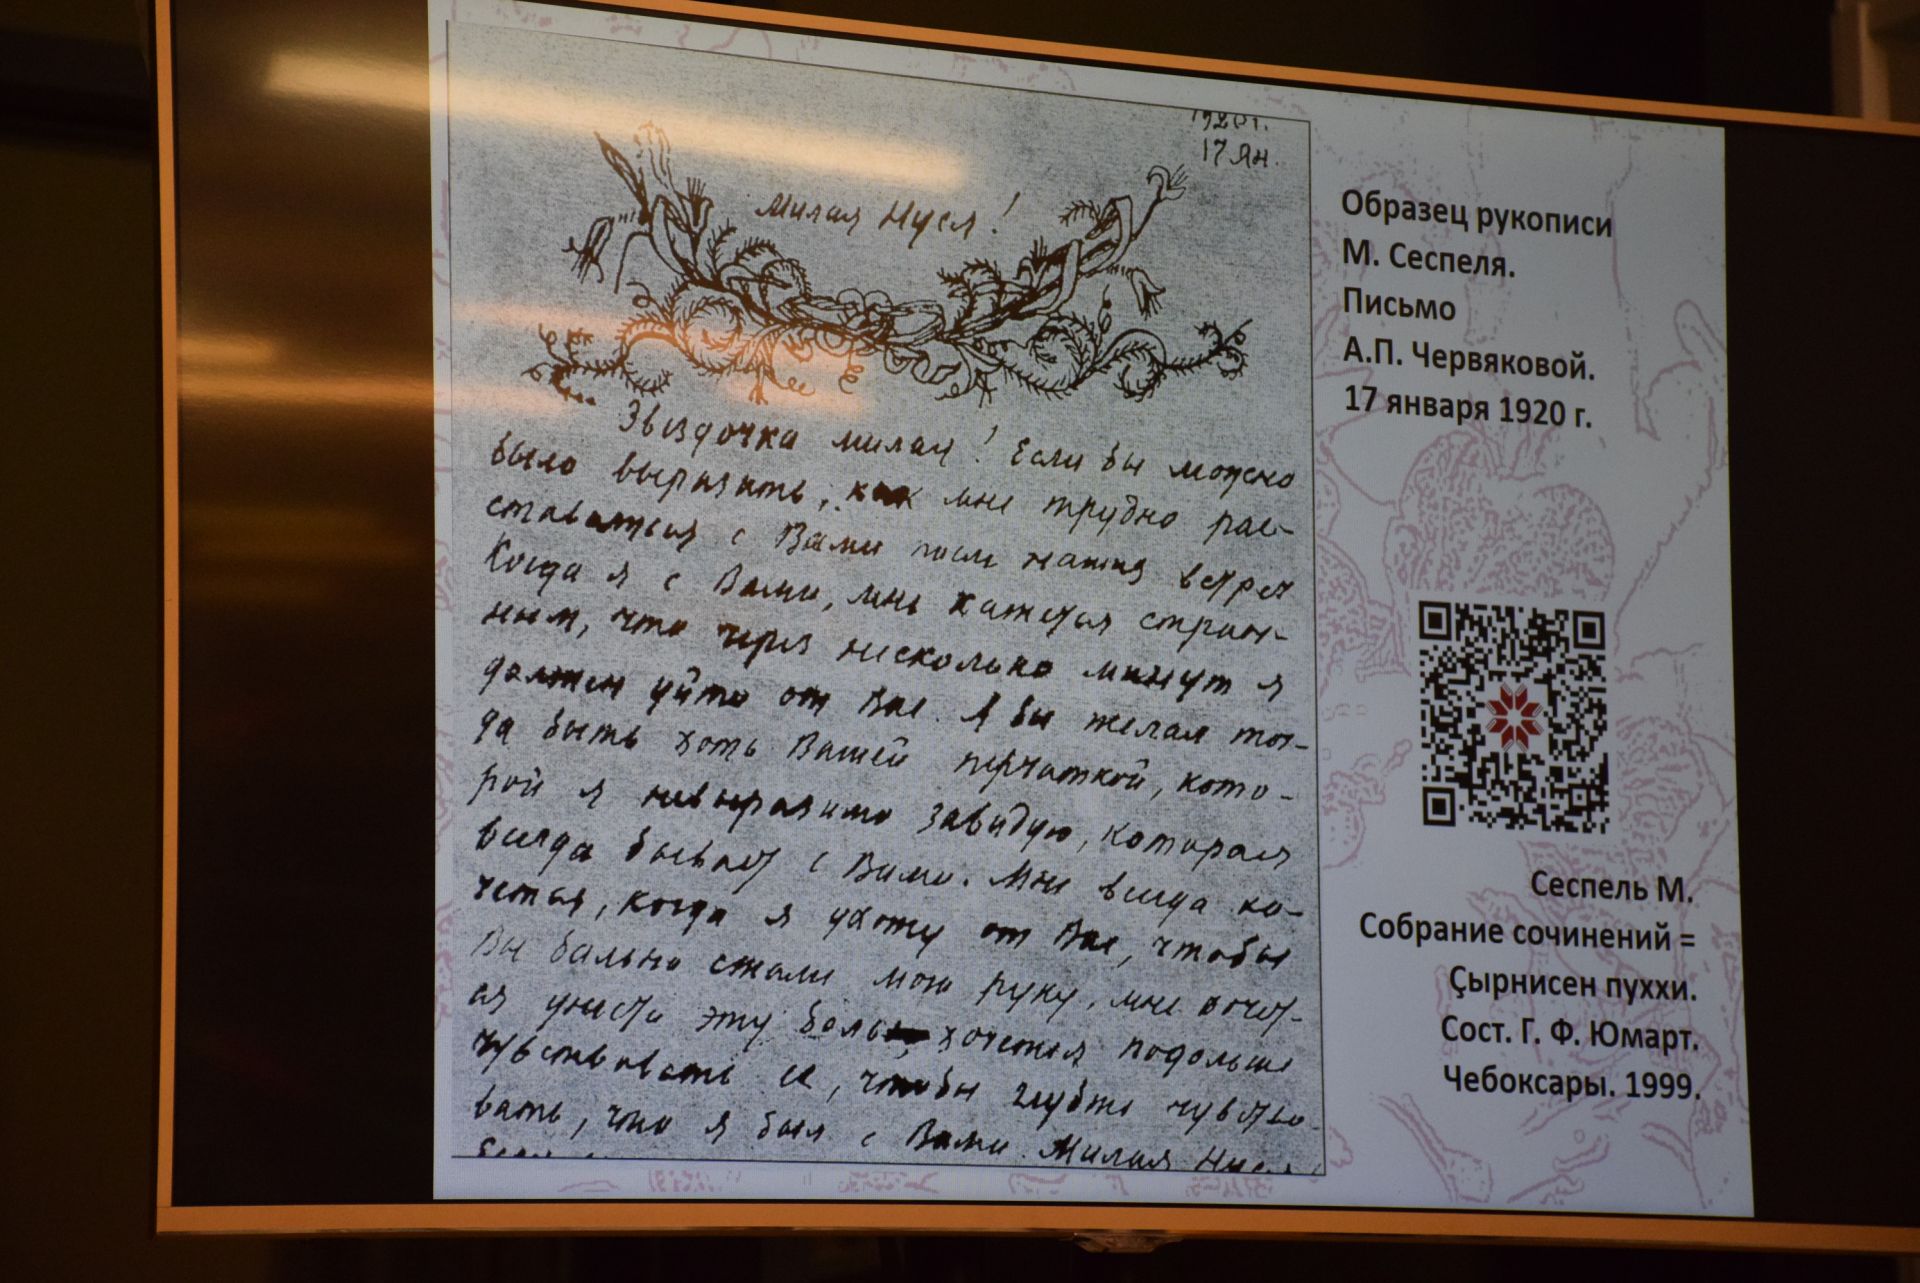 1920г.
17 Ян.
Милая Нуся!
Звездочка милая! Если бы можно
было выразить, как мне трудно рас-
ставаться с Вами после наших встреч
Когда я с Вами, мне кажется стран-
ным, что через несколько минут я
должен уйти от Вас. Я бы желал тог-
да быть хоть Вашей перчаткой, кото-
рой я невыразимо завидую, которая
всегда бывает с Вами. Мне всегда хо-
чется, когда я ухожу от Вас, чтобы
Вы больно сжали мою руку, мне хочет-
ся унести эту боль, хочется подольше
чувствовать ее, чтобы глубже чувство-
вать, что я был с Вами. Милая Нуся
Образец рукописи
М. Сеспеля.
Письмо
А.П. Червяковой.
17 января 1920 г.
Сеспель М.
Собрание сочинений =
Çырнисен пуххи.
Сост. Г. Ф. Юмарт.
Чебоксары. 1999.